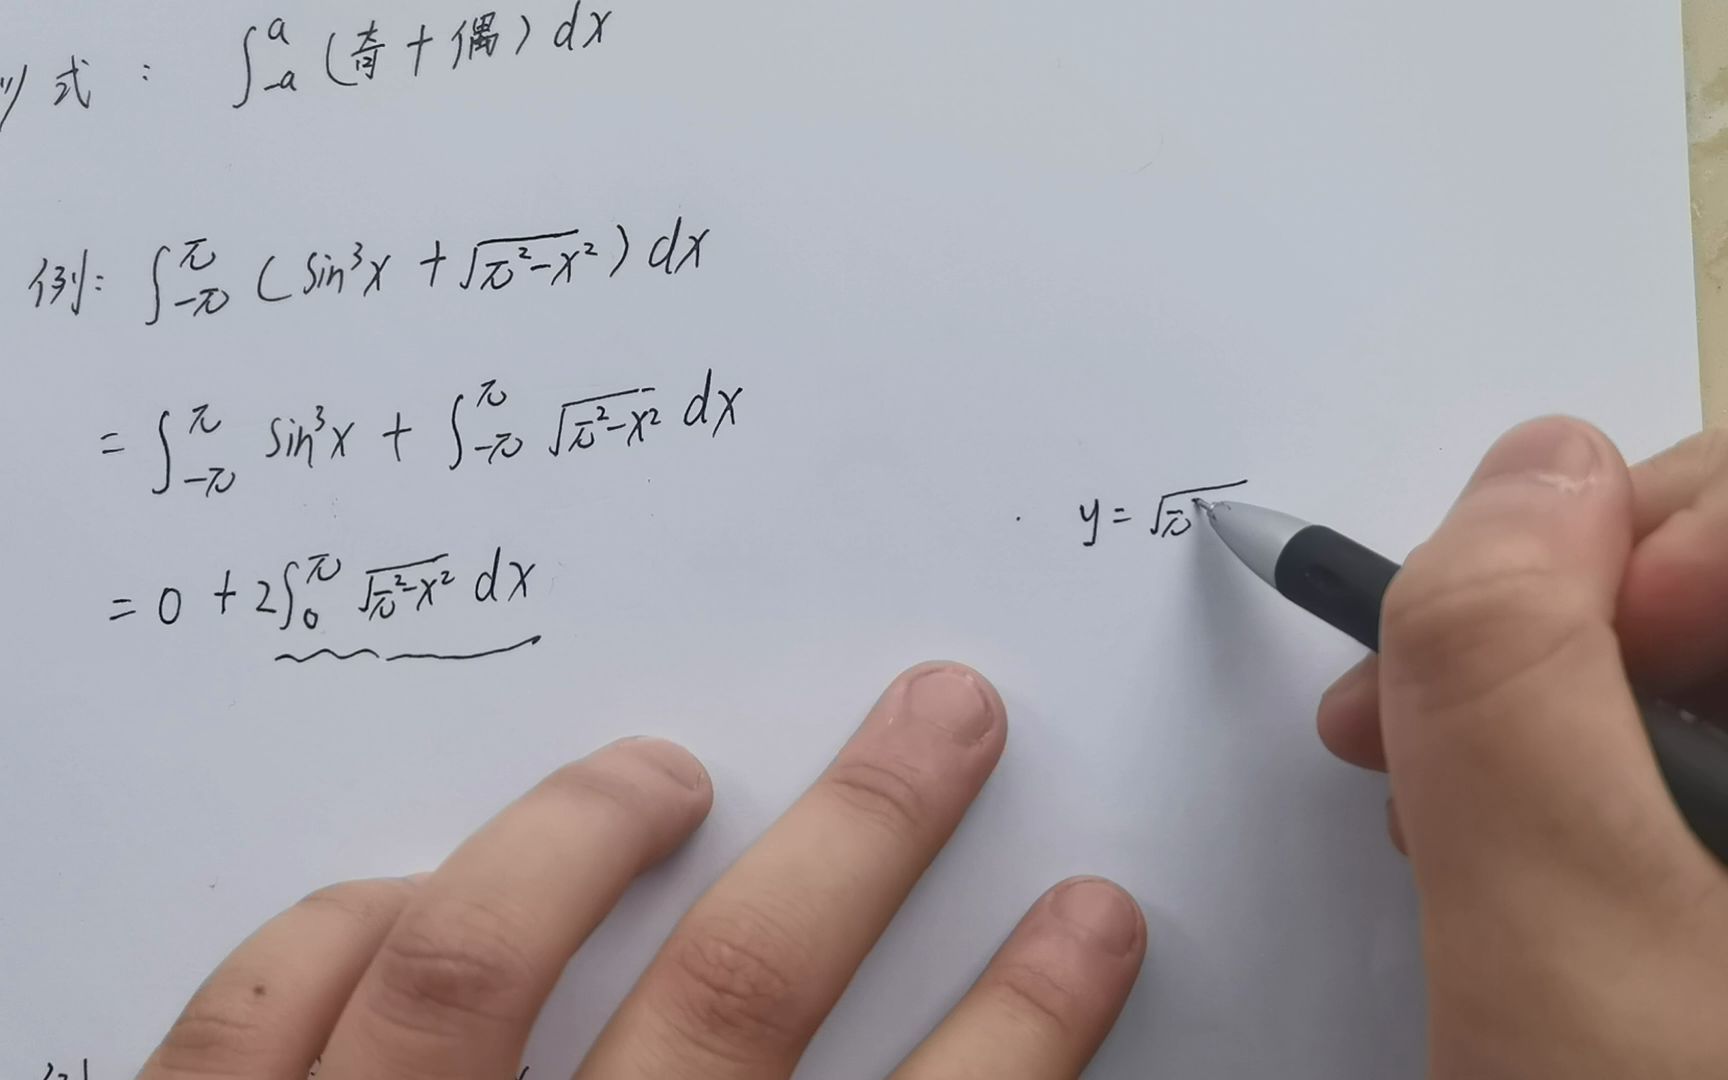 式： ∫_{-a}^{a} (奇 + 偶) dx
例： ∫_{-π}^{π} ( sin³x + √(π²-x²) ) dx
= ∫_{-π}^{π} sin³x + ∫_{-π}^{π} √(π²-x²) dx
= 0 + 2∫_{0}^{π} √(π²-x²) dx
y = √π